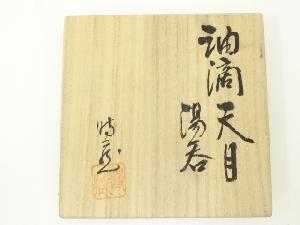 油滴天目
湯呑